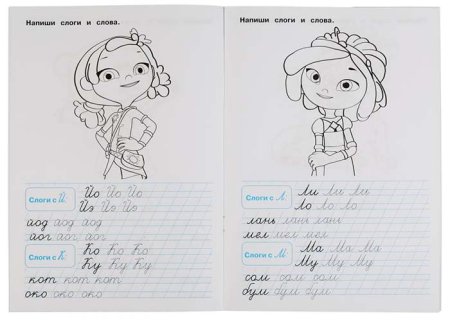 Напиши слоги и слова.
Слоги с Й.
Йо Йо Йо
Йэ Йэ Йэ
йод йод йод
йог йог йог
Слоги с К.
Ко Ко Ко
Ку Ку Ку
кот кот кот
око око око
Напиши слоги и слова.
Слоги с Л.
Ли Ли Ли
Ло Ло Ло
лань лань лань
мел мел мел
Слоги с М.
Ма Ма Ма
Му Му Му
сом сом сом
бум бум бум